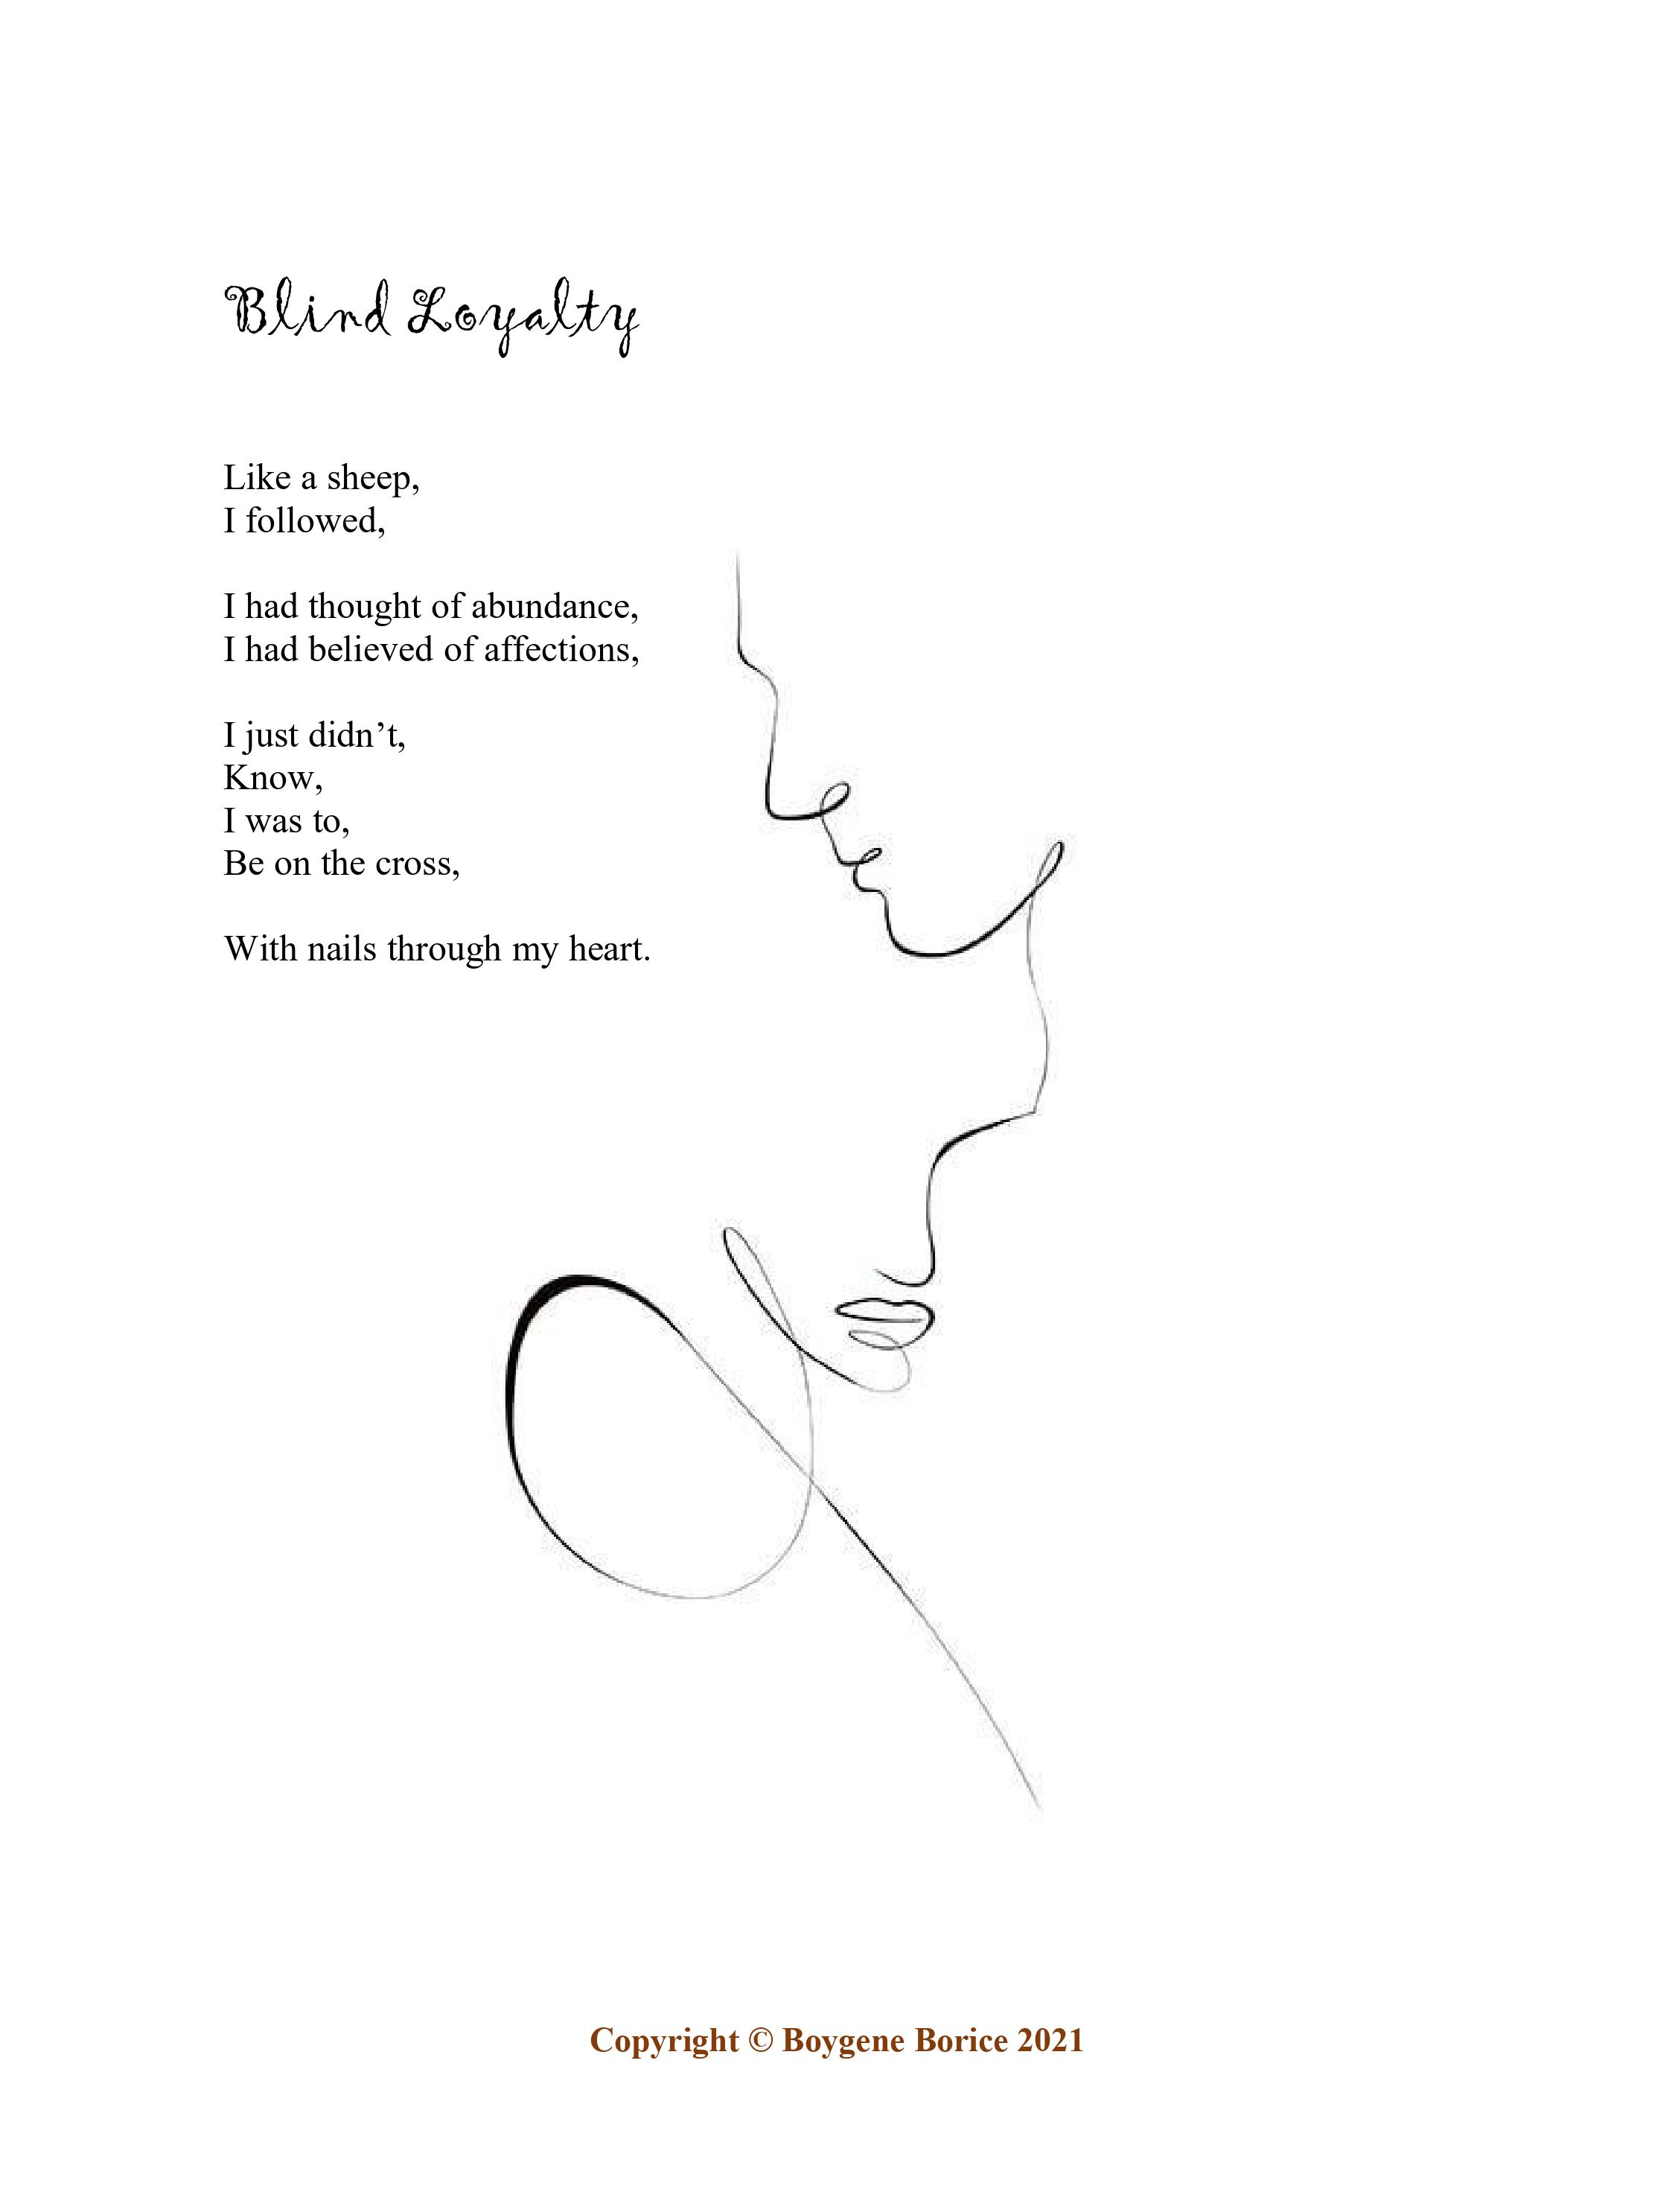 Blind Loyalty
Like a sheep,
I followed,
I had thought of abundance,
I had believed of affections,
I just didn’t,
Know,
I was to,
Be on the cross,
With nails through my heart.
Copyright © Boygene Borice 2021